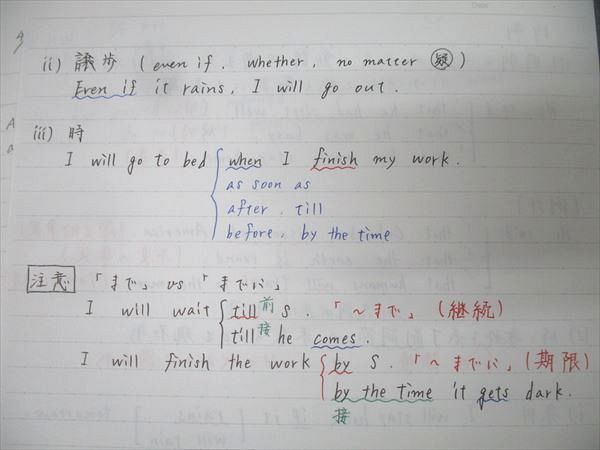 ii) 譲歩 (even if, whether, no matter 疑)
Even if it rains, I will go out.
iii) 時
I will go to bed when I finish my work.
as soon as
after, till
before, by the time
注意 「まで」 vs 「までに」
I will wait till 前 5. 「~まで」 (継続)
till 接 he comes.
I will finish the work by 5. 「~までに」 (期限)
by the time it gets dark.
接